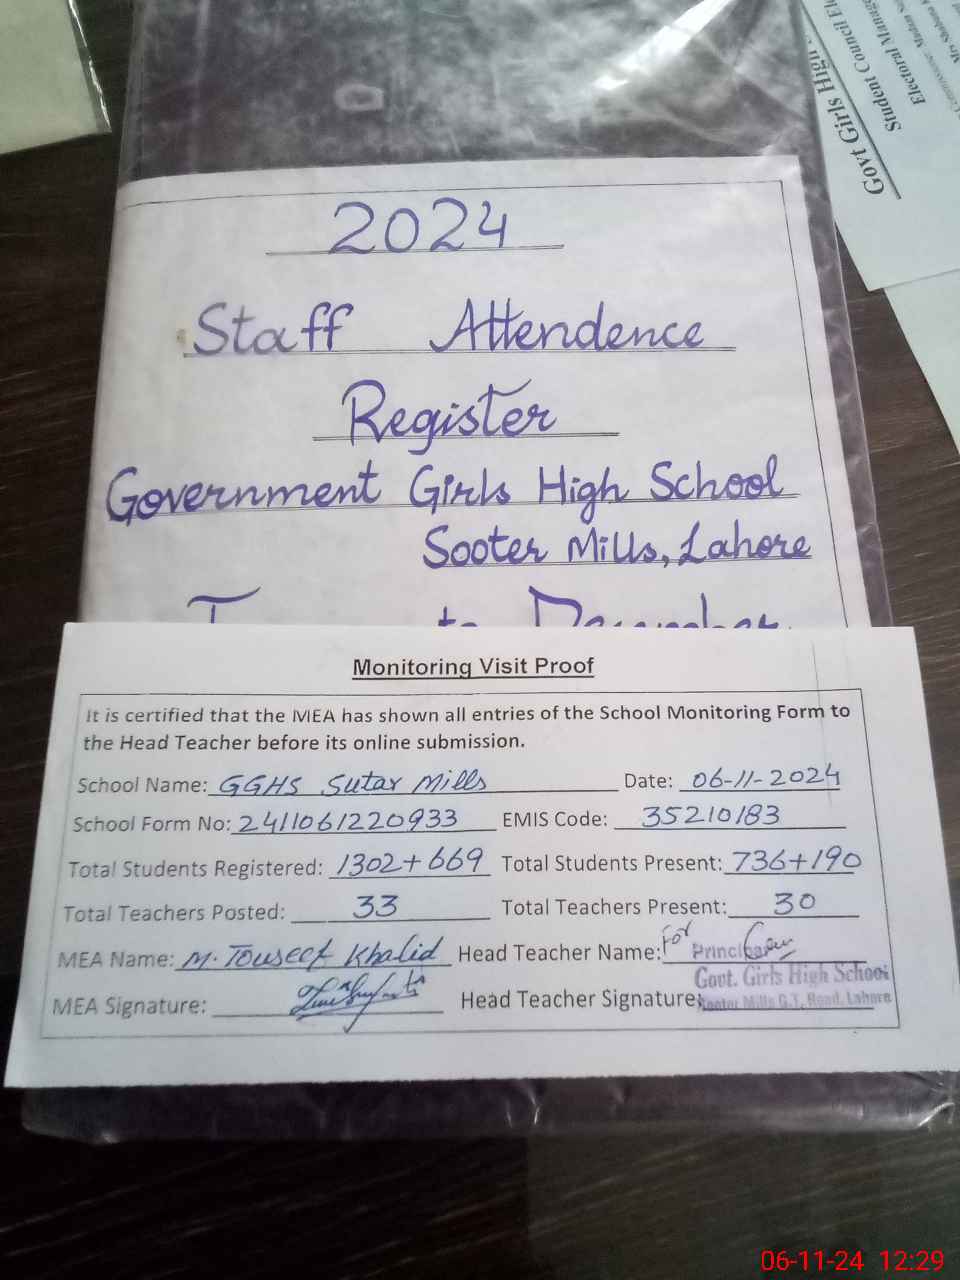 Govt Girls High
Student Council
Electoral
2024
Staff Attendence
Register
Government Girls High School
Sooter Mills, Lahore
to December
Monitoring Visit Proof
It is certified that the MEA has shown all entries of the School Monitoring Form to
the Head Teacher before its online submission.
School Name: GGHS Sutar Mills Date: 06-11-2024
School Form No: 2411061220933 EMIS Code: 35210183
Total Students Registered: 1302+669 Total Students Present: 736+190
Total Teachers Posted: 33 Total Teachers Present: 30
MEA Name: M. Touseef Khalid Head Teacher Name: For Principal
Govt. Girls High School
MEA Signature: Head Teacher Signature: Sooter Mills G.T. Road, Lahore
06-11-24 12:29